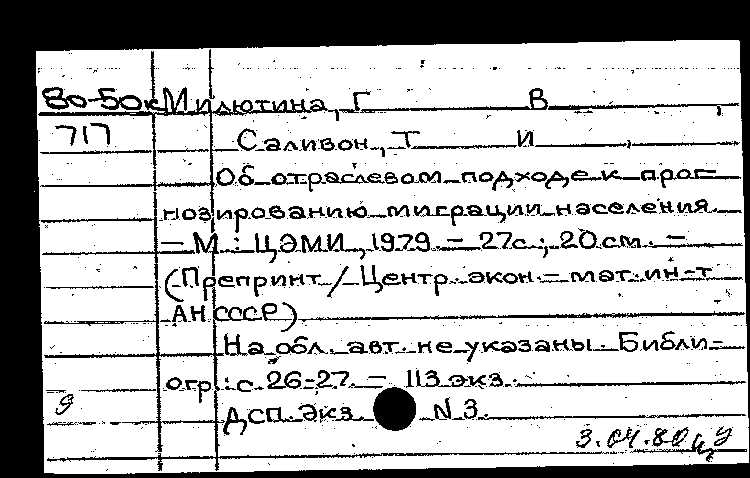 80-50к Милютина, Г В ,
717 Саливон, Т И ,
Об отраслевом подходе к прог-
нозированию миграции населения.
— М.: ЦЭМИ, 1979. — 27с.; 20 см. —
(Препринт / Центр. экон.-мат. ин-т
АН СССР)
На обл. авт. не указаны. Библи-
огр.: с. 26-27. — 113 экз.
Дсп. Экз. N 3.
3.04.80